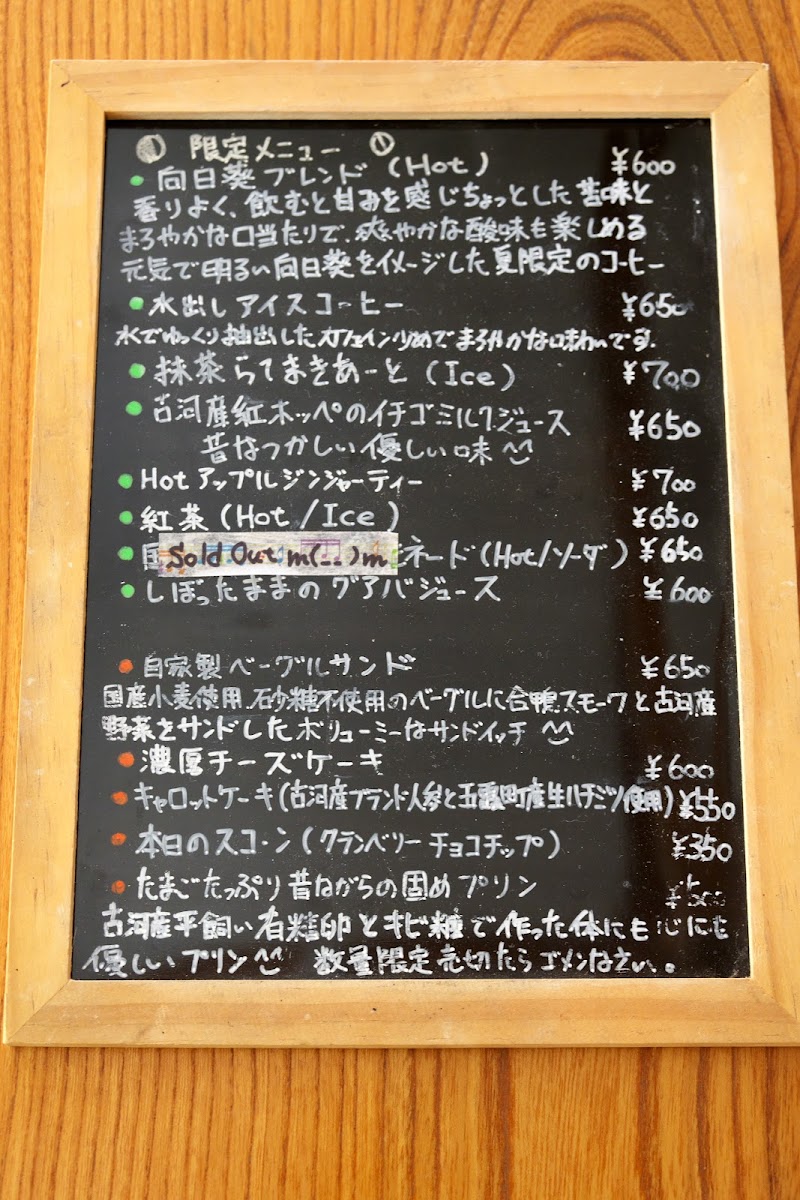 限定メニュー
向日葵ブレンド (Hot) ¥600
香りよく、飲むと甘みを感じちょっとした苦味と
まろやかな口当たりで、爽やかな酸味も楽しめる
元気で明るい向日葵をイメージした夏限定のコーヒー
水出しアイスコーヒー ¥650
水でゆっくり抽出したカフェイン少めでまろやかな味わいです.
抹茶らてまきあーと (Ice) ¥700
古河産紅ホッペのイチゴミルクジュース ¥650
昔なつかしい優しい味
Hot アップルジンジャーティー ¥700
紅茶 (Hot / Ice) ¥650
Sold Out m(_ _)m ネード (Hot/ソーダ) ¥650
しぼったままのグアバジュース ¥600
自家製ベーグルサンド ¥650
国産小麦使用.石砂糖不使用のベーグルに合鴨スモークと古河産
野菜をサンドしたボリューミーなサンドイッチ
濃厚チーズケーキ ¥600
キャロットケーキ(古河産ブランド人参と五霞町産生ハチミツ使用) ¥550
本日のスコーン (クランベリー チョコチップ) ¥350
たまごたっぷり昔ながらの固めプリン ¥500
古河産平飼い有精卵とキビ糖で作った体にも心にも
優しいプリン 数量限定売切たらゴメンなさい。